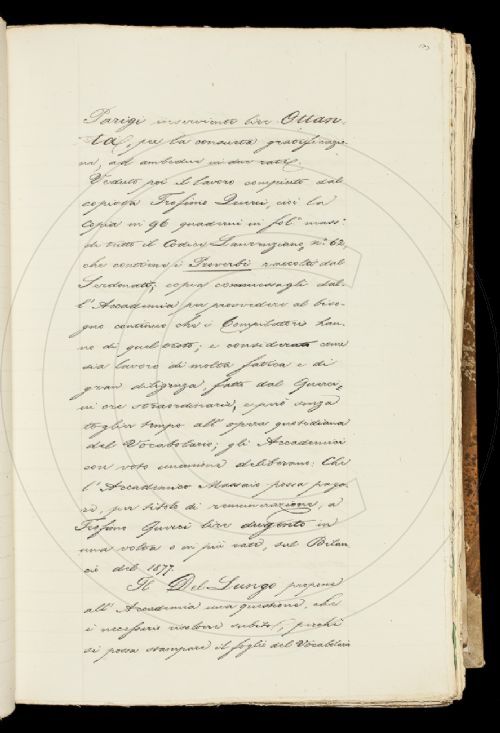 Parigi inserviente lire Quan-
ta, per la consueta gratificazio
ne, ad ambedue in due rate.
Veduto poi il lavoro compiuto dal
copista Trofimo Querci, cioè la
Copia in 96 quaderni in fol.º mass.º
di tutto il Codice Laurenziano, n.º 62,
che contiene i Proverbi raccolti dal
Serdonati; copia commessagli dal-
l'Accademia per provvedere al biso-
gno continuo che i Compilatori han-
no di quel testo; e considerato come
sia lavoro di molta fatica e di
gran diligenza, fatto dal Querci,
in ore straordinarie, e però senza
toglier tempo all'opera quotidiana
del Vocabolario; gli Accademici
con voto unanime deliberano: Che
l'Accademico Massaio possa paga-
re, per titolo di remunerazione, a
Trofimo Querci lire dugento in
una volta o in più rate, sul Bilan
cio del 1877.
Il Del Lungo propone
all'Accademia una questione, che
è necessario risolvere subito, perché
si possa stampare il foglio del Vocabolario